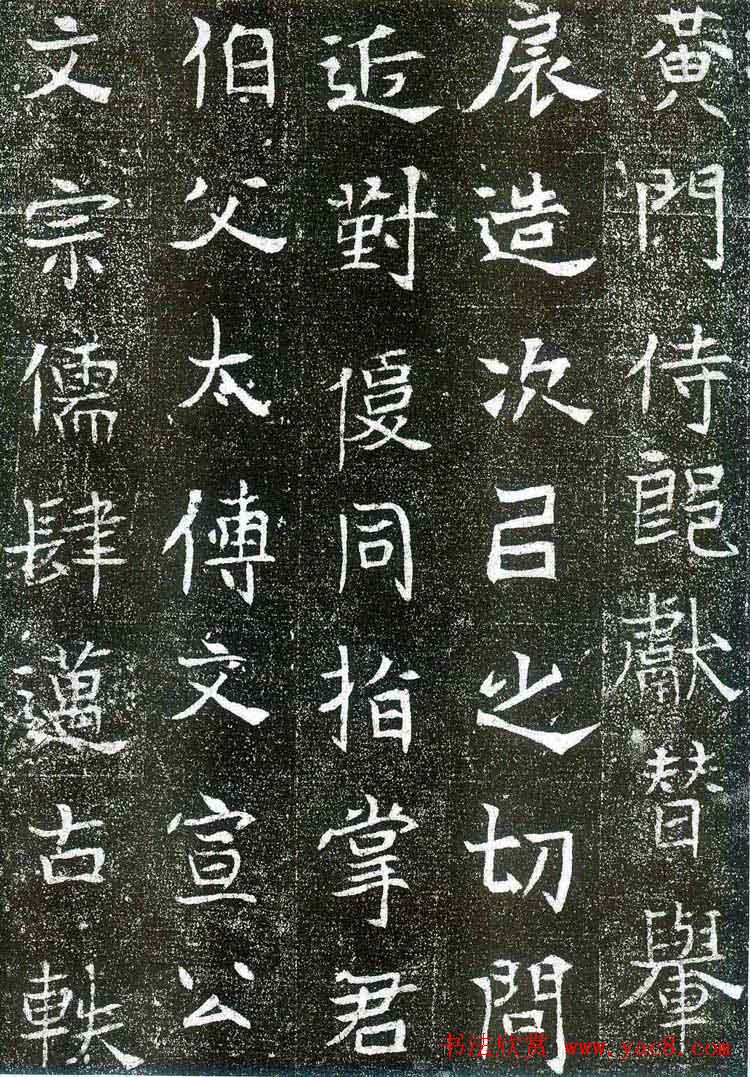 黃門侍郎獻替轝
扆造次㠯之切問
近對優同指掌君
伯父太傅文宣公
文宗儒肆邁古軼
书法欣赏 www.yac8.com